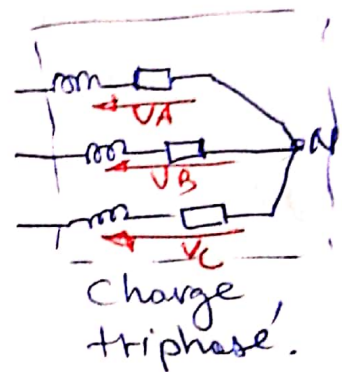 VA
VB
N
VC
Charge
triphasé.